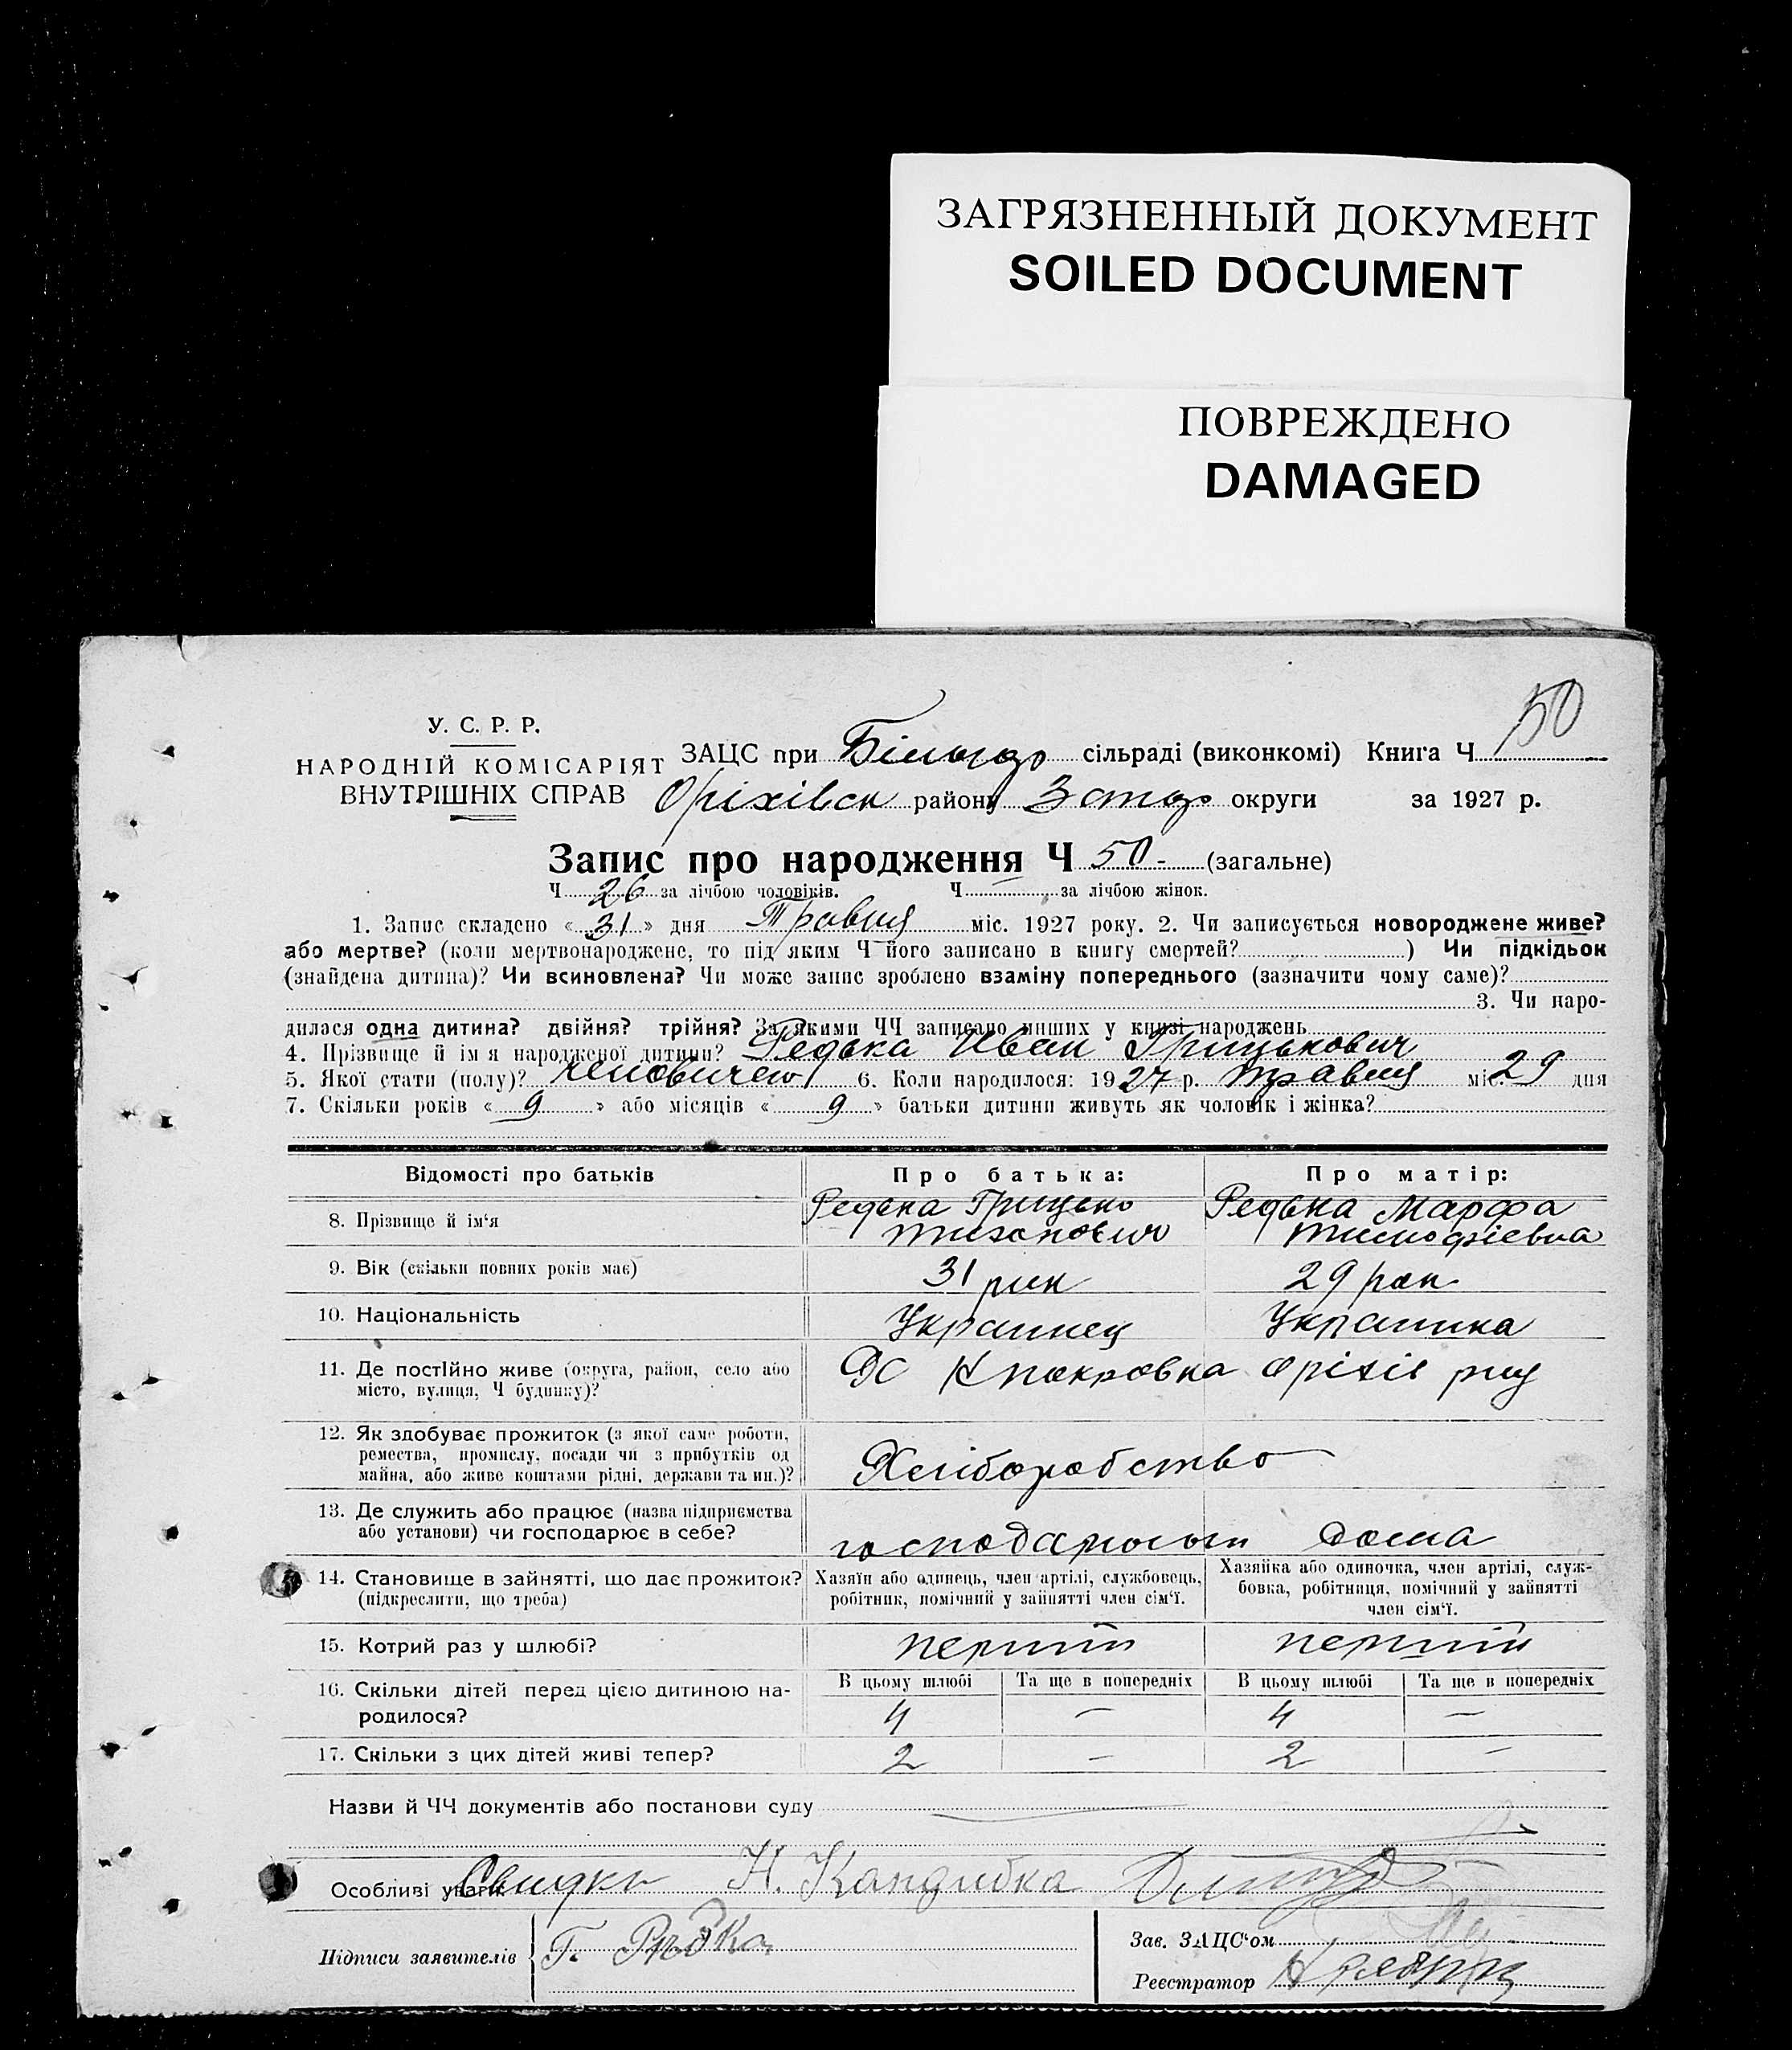 ЗАГРЯЗНЕННЫЙ ДОКУМЕНТ
SOILED DOCUMENT
ПОВРЕЖДЕНО
DAMAGED
50
У. С. Р. Р.
НАРОДНІЙ КОМІСАРІЯТ
ВНУТРІШНІХ СПРАВ
ЗАЦС при сільраді (виконкомі) Книга Ч
Оріхівск району Запор округи за 1927 р.
Запис про народження Ч 50 - (загальне)
Ч 26 за лічбою чоловіків. Ч — за лічбою жінок.
1. Запис складено « 31 » дня Травня міс. 1927 року. 2. Чи записується новороджене живе?
або мертве? (коли мертвонароджене, то під яким Ч його записано в книгу смертей? ) Чи підкідьок
(знайдена дитина)? Чи всиновлена? Чи може запис зроблено взаміну попереднього (зазначити чому саме)?
3. Чи наро-
дилася одна дитина? двійня? трійня? За якими ЧЧ записано инших у книзі народжень
4. Прізвище й ім я народженої дитини? Редька Иван Грицькович
5. Якої стати (полу)? 6. Коли народилося: 1927 р. травня міс. 29 дня
7. Скільки років « 9 » або місяців « 9 » батьки дитини живуть як чоловік і жінка?
Відомості про батьків Про батька: Про матір:
8. Прізвище й ім‘я Редька Грицько Редька Марфа
Тимофіевна
9. Вік (скільки повних років має) 31 рик 29 рок
10. Національність Украинец Украинка
11. Де постІйно живе (округа, район, село або
місто, вулиця, Ч будинку)?
покровка Оріхів
12. Як здобуває прожиток (з якої саме роботи,
ремества, промислу, посади чи з прибутків од
майна, або живе коштами рідні, держави та ин.)?
Хліборобство
13. Де служить або працює (назва підприємства
або установи) чи господарює в себе?
дома
14. Становище в зайнятті, що дає прожиток?
(підкреслити, що треба)
Хазяїн або одинець, член артілі, службовець,
робітник, помічний у зайнятті член сім‘ї.
Хазяйка або одиночка, член артілі, служ-
бовка, робітниця, помічний у зайнятті
член сім‘ї.
15. Котрий раз у шлюбі? перший перший
16. Скільки дітей перед цією дитиною на-
родилося?
В цьому шлюбі Та ще в попередніх В цьому шлюбі Та ще в попередніх
4 — 4 —
17. Скільки з цих дітей живі тепер? 2 — 2 —
Назви й ЧЧ документів або постанови суду
Особливі уваги Свидки Н. Кандибка
Підписи заявителів Г. Рѣдка
Зав. ЗАЦС‘ом
Реєстратор